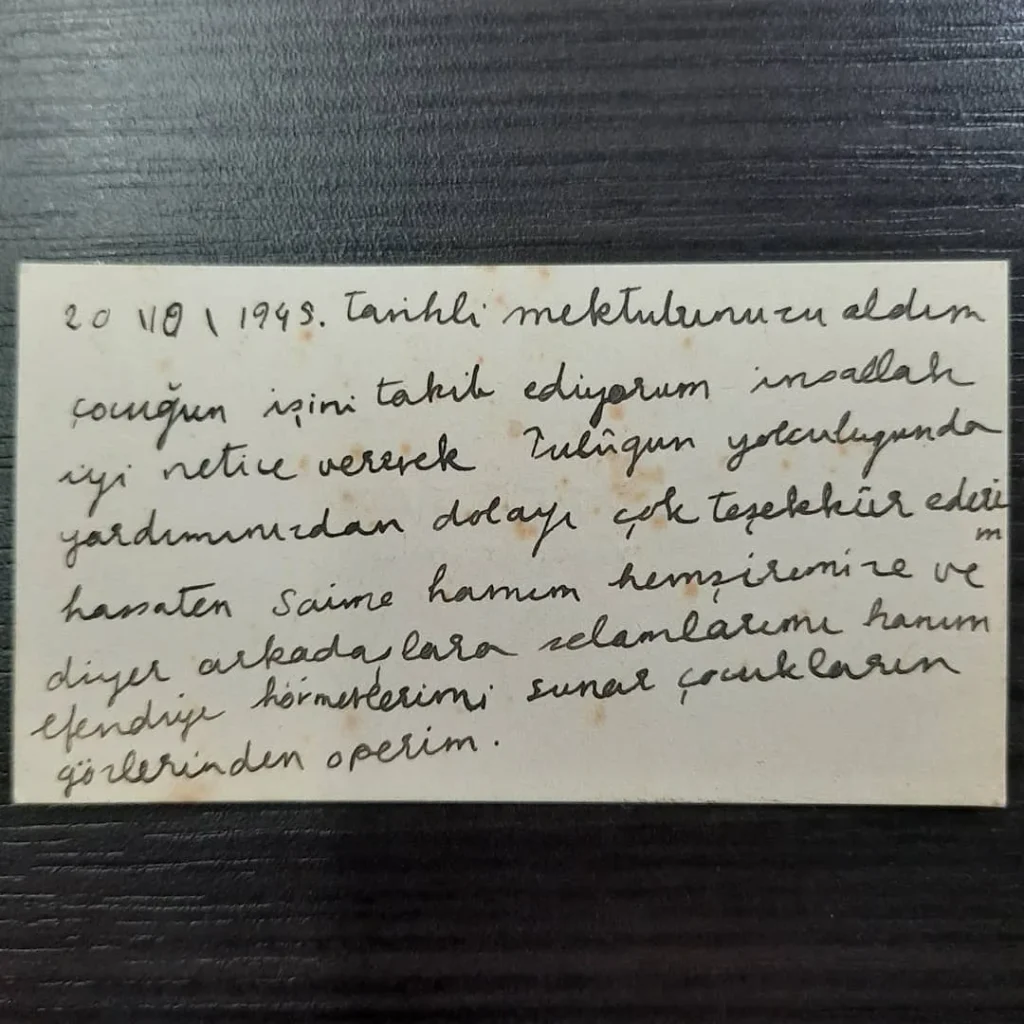 20 \10 \ 1949. tarihli mektubunuzu aldım
çocuğun işini takib ediyorum inşallah
iyi netice verecek Tulûgun yolculugunda
yardımınızdan dolayı çok teşekkür ederi
m
hassaten Saime hanım hemşiremize ve
diyer arkadaşlara selamlarımı hanım
efendiye hörmetlerimi sunar çocukların
gözlerinden operim.